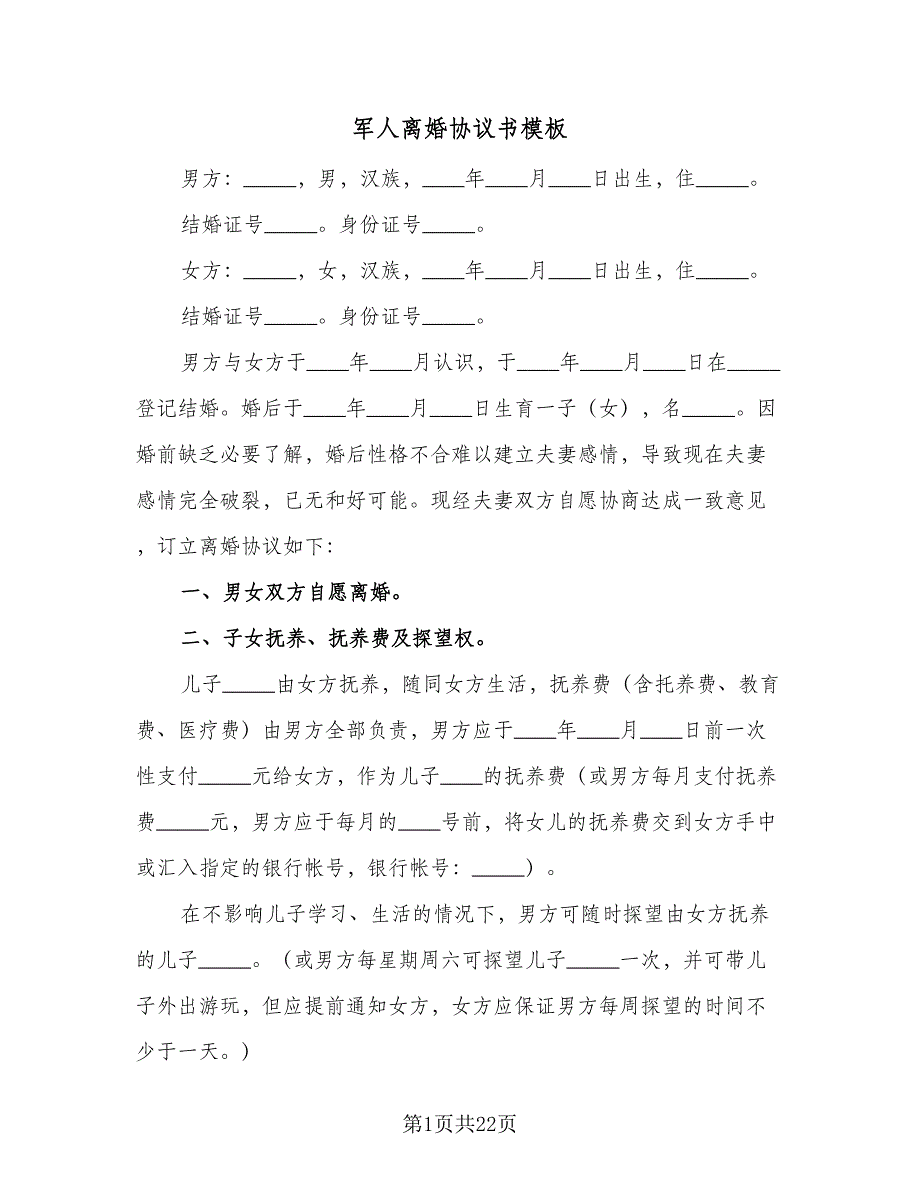 军人离婚协议书模板
男方：_____，男，汉族，____年____月____日出生，住_____。
结婚证号_____。身份证号_____。
女方：_____，女，汉族，____年____月____日出生，住_____。
结婚证号_____。身份证号_____。
男方与女方于____年____月认识，于____年____月____日在_____
登记结婚。婚后于____年____月____日生育一子（女），名_____。因
婚前缺乏必要了解，婚后性格不合难以建立夫妻感情，导致现在夫妻
感情完全破裂，已无和好可能。现经夫妻双方自愿协商达成一致意见
，订立离婚协议如下：
一、男女双方自愿离婚。
二、子女抚养、抚养费及探望权。
儿子_____由女方抚养，随同女方生活，抚养费（含托养费、教育
费、医疗费）由男方全部负责，男方应于____年____月____日前一次
性支付_____元给女方，作为儿子____的抚养费（或男方每月支付抚养
费_____元，男方应于每月的____号前，将女儿的抚养费交到女方手中
或汇入指定的银行帐号，银行帐号：_____）。
在不影响儿子学习、生活的情况下，男方可随时探望由女方抚养
的儿子_____。（或男方每星期周六可探望儿子_____一次，并可带儿
子外出游玩，但应提前通知女方，女方应保证男方每周探望的时间不
少于一天。）
第1页共22页